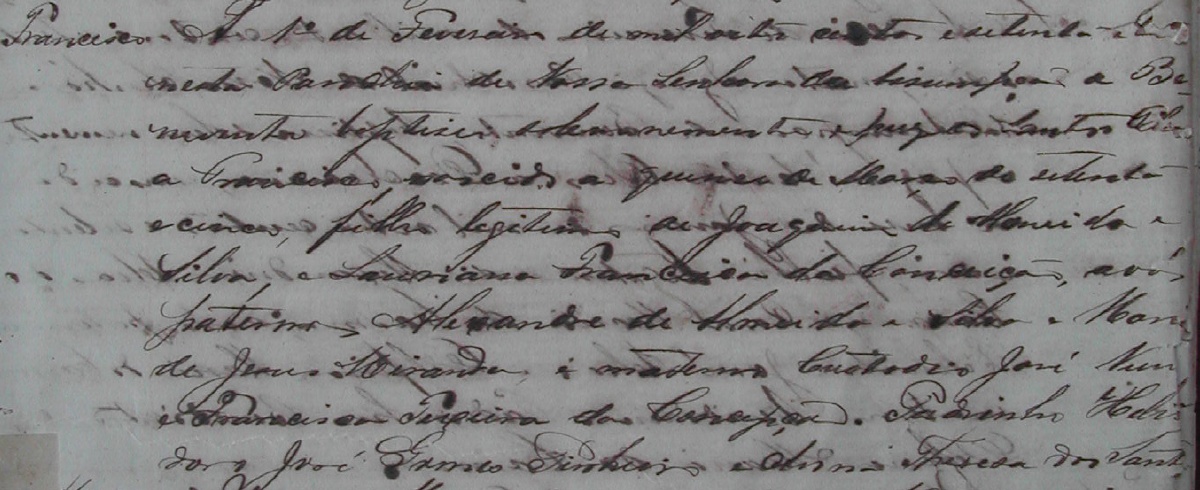 Francisco. A 1º de Fevereiro de mil oito centos e setenta e
nesta Parochia de Nossa Senhora da Assumpção a Be
nevente baptisei solemnemente, e puz os Santos
a Francisco, nascido a quinze de Março de setenta
e cinco, filho legitimo de Joaquim de Almeida e
Silva, e Lauriana Francisca da Conceição, avós
paternos, Alexandre de Almeida e Silva e Mari
de Jesus Miranda, e maternos Custodio José Nun
e Francisca Siqueira da Conceição. Padrinho Heli
doro José Gomes Pinheiro e Thereza dos Sant